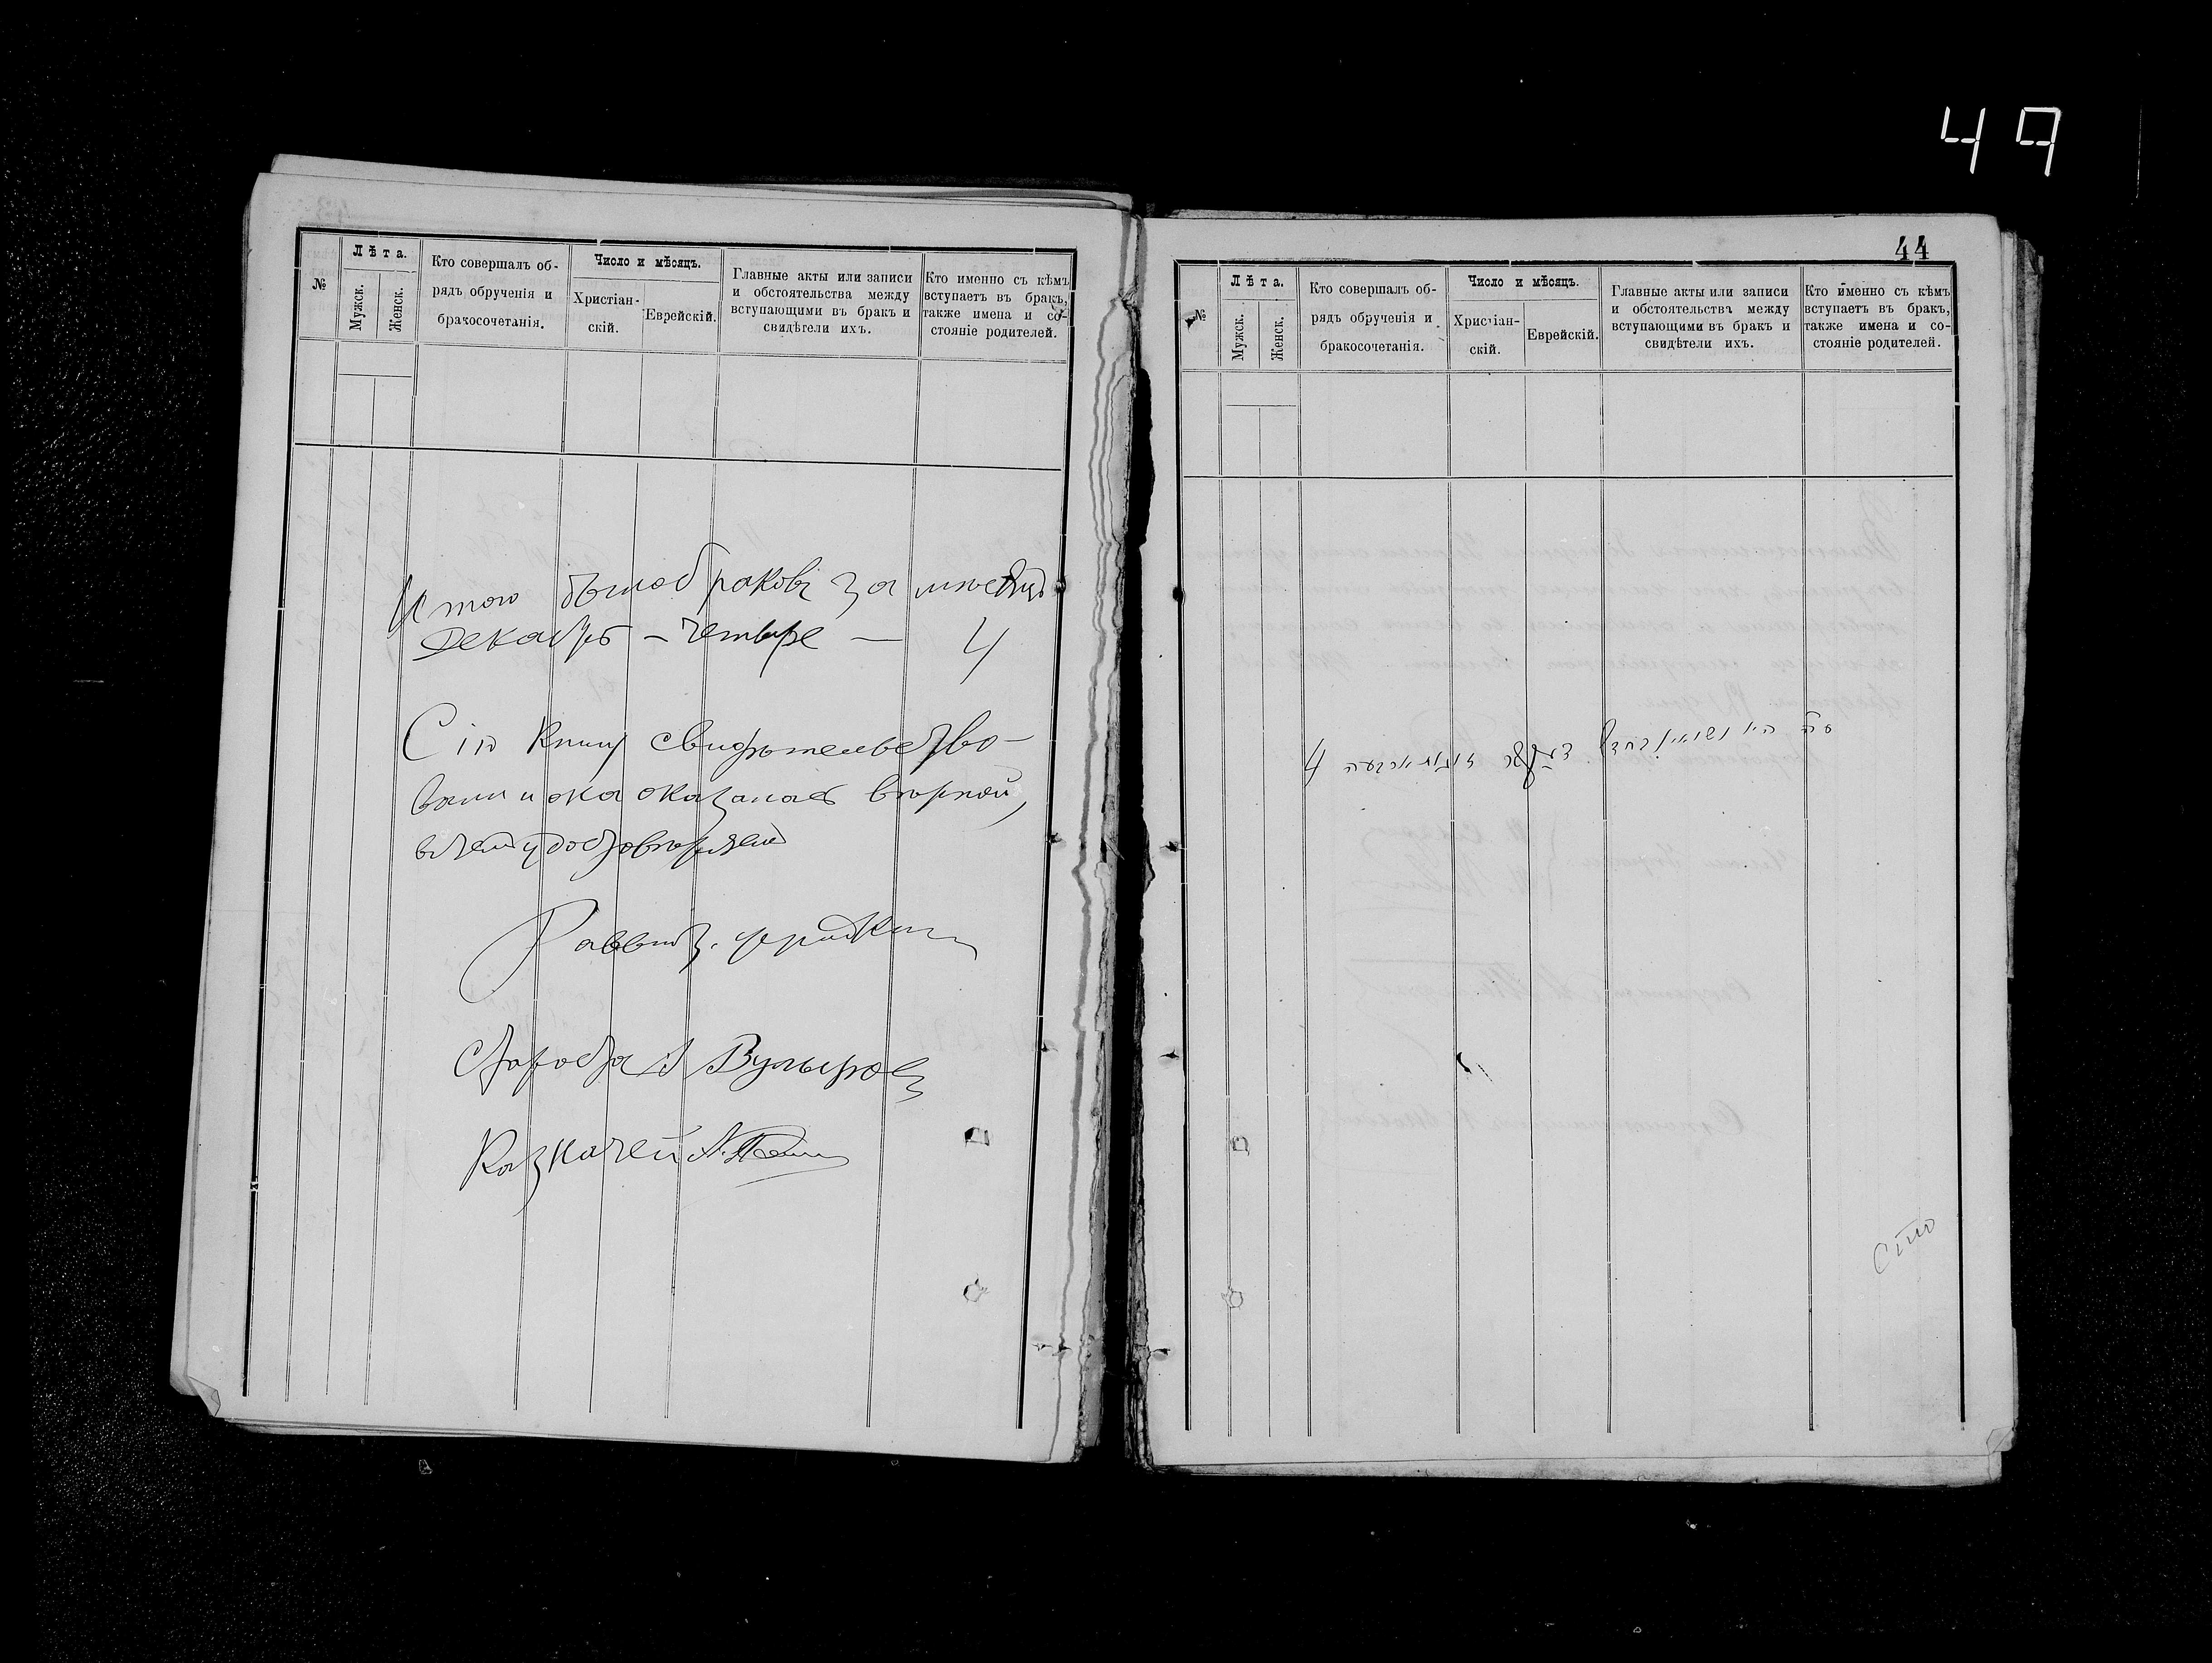 49
№
Лѣта.
Мужск.
Женск.
Кто совершалъ об-
рядъ обрученія и
бракосочетанія.
Число и мѣсяцъ.
Христіан-
скій.
Еврейскій.
Главные акты или записи
и обстоятельства между
вступающими въ бракъ и
свидѣтели ихъ.
Кто именно съ кѣмъ
вступаетъ въ бракъ,
также имена и со-
стояніе родителей.
Итого было браковъ за мѣсяцъ
Декабрь - четыре — 4
Сію книгу свидѣтельство-
вали и она оказалась вѣрной,
въ чемъ удостовѣряемъ
Раввинъ
Староста
Казначей
44
№
Лѣта.
Мужск.
Женск.
Кто совершалъ об-
рядъ обрученія и
бракосочетанія.
Число и мѣсяцъ.
Христіан-
скій.
Еврейскій.
Главные акты или записи
и обстоятельства между
вступающими въ бракъ и
свидѣтели ихъ.
Кто именно съ кѣмъ
вступаетъ въ бракъ,
также имена и со-
стояніе родителей.
ארבעה 4